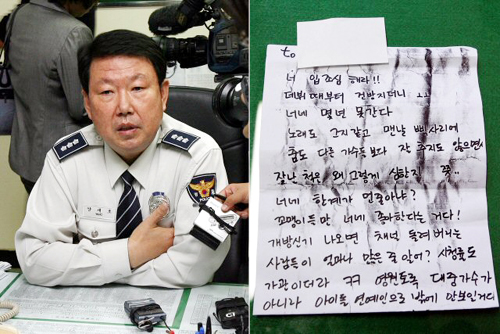 to
너 입조심 해라!!
데뷔 때부터 건방지더니 ㅗㅗ
너네 몇년 못간다
노래도 그지같고 맨날 삐사리에
춤도 다른 가수들보다 잘 추지도 않으면서
잘난 척은 왜 그렇게 심한지 쯪..
너네 한계가 먼줄아냐?
꼬맹이들만 너네 좋아한다는 거다!
개방싱기 나오면 채널 돌려버는
사람들이 얼마나 많은 줄 알어? 시청률도
가관이더라 ㅋㅋ 영원토록 대중가수가
아니라 아이돌 연예인으로 밖에 안보인거다